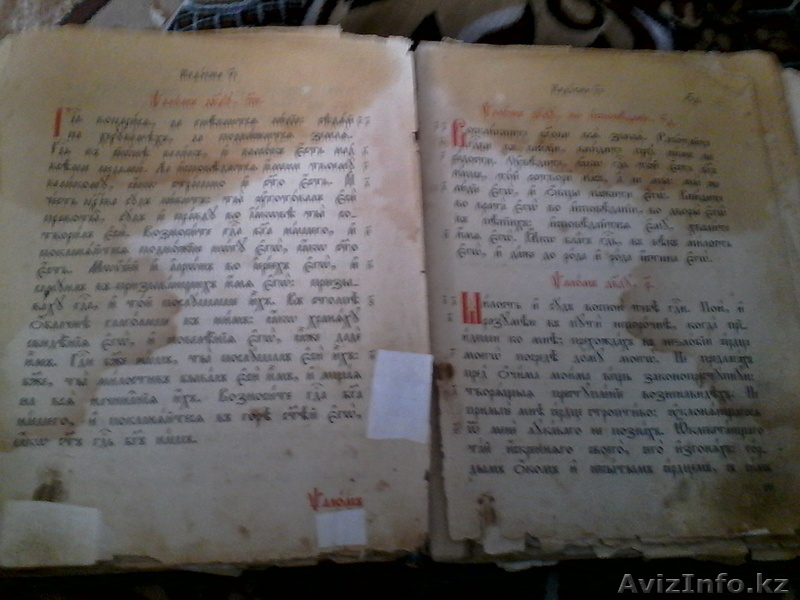 Ѱаломъ дв҃ду, ч҃и.
Гдⷭ҇ь воцари́сѧ, да гнѣ́ваютсѧ лю́дїе: сѣдѧ́й
на херꙋві́мѣхъ, да подви́житсѧ землѧ̀.
Гдⷭ҇ь въ сїѡ́нѣ вели́къ, и҆ высо́къ є҆́сть над̾
всѣ́ми людьмѝ. Да и҆сповѣ́дѧтсѧ и҆́мени твоемꙋ̀
вели́комꙋ, ꙗ҆́кѡ стра́шно и҆ ст҃о є҆́сть. И҆
че́сть царе́ва сꙋ́дъ лю́битъ: ты̀ ᲂу҆гото́валъ є҆сѝ
правоты̑, сꙋ́дъ и҆ пра́вдꙋ во і҆а́кѡвѣ ты̀ со-
твори́лъ є҆сѝ. Возноси́те гдⷭ҇а бг҃а на́шего, и҆
покланѧ́йтесѧ подно́жїю но́гꙋ є҆гѡ̀, ꙗ҆́кѡ ст҃о
є҆́сть. Мѡѷсе́й и҆ а҆арѡ́нъ во і҆ере́ехъ є҆гѡ̀, и҆
самꙋи́лъ въ призыва́ющихъ и҆́мѧ є҆гѡ̀: призы-
ва́хꙋ гдⷭ҇а, и҆ то́й послꙋ́шаше и҆́хъ. Въ столпѣ̀
ѻ҆́блачнѣ глаго́лаше къ ни̑мъ: ꙗ҆́кѡ хранѧ́хꙋ
свидѣ̑нїѧ є҆гѡ̀, и҆ повелѣ̑нїѧ є҆гѡ̀, ꙗ҆̀же дадѐ
и҆̀мъ. Гдⷭ҇и бж҃е на́шъ, ты̀ послꙋ́шалъ є҆сѝ и҆́хъ:
бж҃е, ты̀ млⷭ҇тивъ быва́лъ є҆сѝ и҆̀мъ, и҆ мща́ѧ
на всѧ̑ начина̑нїѧ и҆́хъ. Возноси́те гдⷭ҇а бг҃а
на́шего, и҆ покланѧ́йтесѧ въ горѣ̀ ст҃ѣ́й є҆гѡ̀,
ꙗ҆́кѡ ст҃ъ гдⷭ҇ь бг҃ъ на́шъ.
Ѱало́мъ
Ѱало́мъ дв҃дꙋ, во и҆сповѣ́данїе, ч҃ѳ.
Воскли́кните бг҃ови всѧ̀ землѧ̀. Рабо́тайте
во врата̀ є҆гѡ̀ во и҆сповѣ́данїи, во дворы̀ є҆гѡ̀
въ пѣ́нїихъ: и҆сповѣ́дайтесѧ є҆мꙋ̀, хвали́те
и҆́мѧ є҆гѡ̀. Ꙗ҆́кѡ бл҃гъ гдⷭ҇ь, въ вѣ́къ млⷭ҇ть
є҆гѡ̀, и҆ да́же до ро́да и҆ ро́да и҆́стина є҆гѡ̀.
Ѱало́мъ дв҃дꙋ, р҃.
Ми́лость и҆ сꙋ́дъ воспою̀ тебѣ̀ гдⷭ҇и. Пою̀, и҆
разꙋмѣ́ю въ пꙋтѝ непоро́чнѣ, когда̀ прї-
и́деши ко мнѣ̀; прехожда́хъ въ неѕло́бїи се́рдца
моегѡ̀ посредѣ̀ до́мꙋ моегѡ̀. Не предлага́хъ
пред̾ ѻ҆чи́ма мои́ма ве́щь законопрестꙋ́пнꙋю:
творѧ́щыѧ престꙋпле́нїе возненави́дѣхъ. Не
прильпѐ мнѣ̀ се́рдце стропти́во: ᲂу҆клонѧ́ющагосѧ
ѿ менє̀ лꙋка́ваго не позна́хъ. Ѡ҆клевета́ющаго
та́й и҆́скреннѧго своего̀, сего̀ и҆згонѧ́хъ: го́р-
дымъ ѻ҆́комъ и҆ несы́тымъ се́рдцемъ, съ си́мъ
AvizInfo.kz